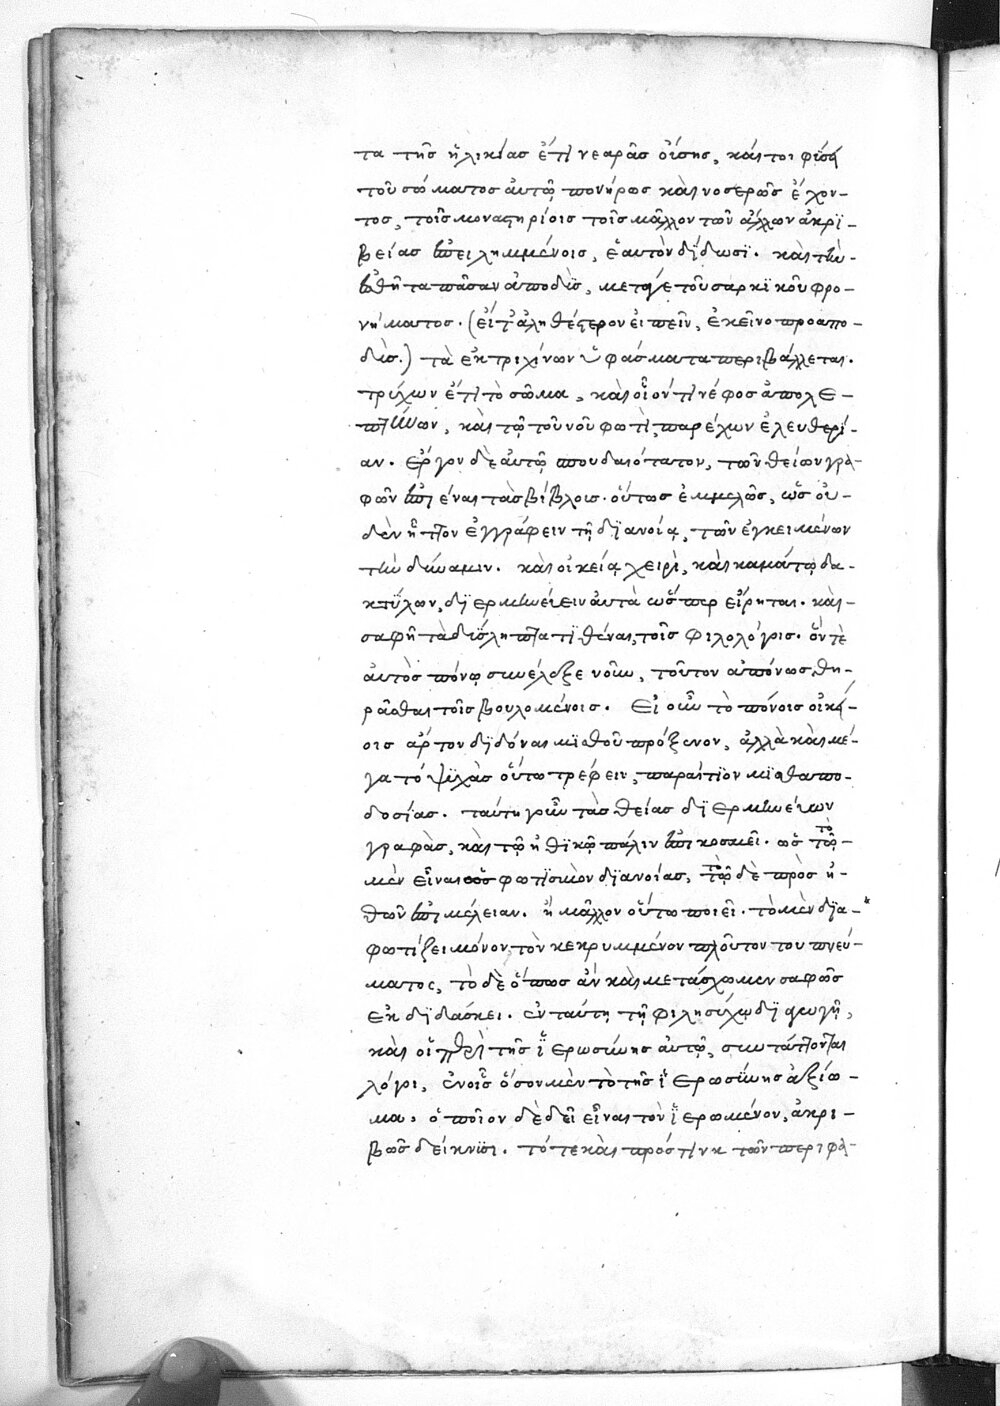 τα τῆς ἡλικίας ἔτι νεαρᾶς οὔσης, καίτοι φύσει
τοῦ σώματος αὐτῷ πονήρως καὶ νοσερῶς ἔχον-
τος, τοῖς μοναστηρίοις τοῖς μᾶλλον τῶν ἄλλων ἀκρι-
βείας ἐπειλημμένοις, ἑαυτὸν δίδωσι. καὶ τὴν
ἐσθῆτα πᾶσαν ἀποδὺς, μετά γε τοῦ σαρκικοῦ φρο-
νήματος. (εἴτ' ἀληθέστερον εἰπεῖν, ἐκεῖνο προαπο-
δὺς.) τὰ ἐκ τριχίνων ὑφάσματα περιβάλλεται.
τρύχων ἔτι τὸ σῶμα, καὶ οἷόν τι νέφος ἀπολε-
πτύνων, καὶ τῷ τοῦ νοῦ φωτὶ, παρέχων ἐλευθερί-
αν. ἔργον δὲ αὐτῷ σπουδαιότατον, τῶν θείων γρα-
φῶν ἐπιέναι τὰς βίβλοις. οὕτως ἐμμελῶς, ὡς οὐ-
δὲν ἧττον ἐγγράφειν τῇ διανοίᾳ, τῶν ἐγκειμένων
τὴν δύναμιν. καὶ οἰκείᾳ χειρὶ, καὶ καμάτῳ δα-
κτύλων, διερμηνεύειν αὐτὰ ὥσπερ εἴρηται. καὶ
σαφῆ τὰ δύσληπτα τιθέναι, τοῖς φιλολόγοις. ὅν τε
αὐτὸς πόνῳ συνέλεξε νοῦν, τοῦτον ἀπόνως θη-
ρᾶσθαι τοῖς βουλομένοις. Εἰ οὖν τὸ πόνοις οἰκεί-
οις ἄρτον διδόναι μισθοῦ πρόξενον, ἀλλὰ καὶ μέ-
γα τό ψυχὰς οὕτω τρέφειν, παραίτιον μισθαπο-
δοσίας. ταύτῃ γοῦν τὰς θείας διερμηνεύων
γραφὰς, καὶ τῷ ἠθικῷ πάλιν ἐπικοσμεῖ. ὡς τὸ
μὲν εἶναι φωτισμὸν διανοίας, τὸ δὲ πρὸς ἠ-
θῶν ἐπιμέλειαν. ἢ μᾶλλον οὕτω ποιεῖ. τὸ μὲν δια-
φωτίζει μόνον, τὸν κεκρυμμένον πλοῦτον του πνεύ-
ματος, τὸ δὲ ὅπως ἂν καὶ μετάσχωμεν σαφῶς
ἐκδιδάσκει. ἐν ταύτῃ τῇ φιλησύχῳ διαγωγῇ,
καὶ οἱ περὶ τῆς ἱερωσύνης αὐτῷ, συντάττονται
λόγοι, ἐν οἷς ὅσον μὲν τὸ τῆς ἱερωσύνης ἀξίω-
μα, ὁποῖον δὲ δεῖ εἶναι τὸν ἱερωμένον, ἀκρι-
βῶς δείκνυσι. τότε καὶ πρός τινα τῶν περιφα-